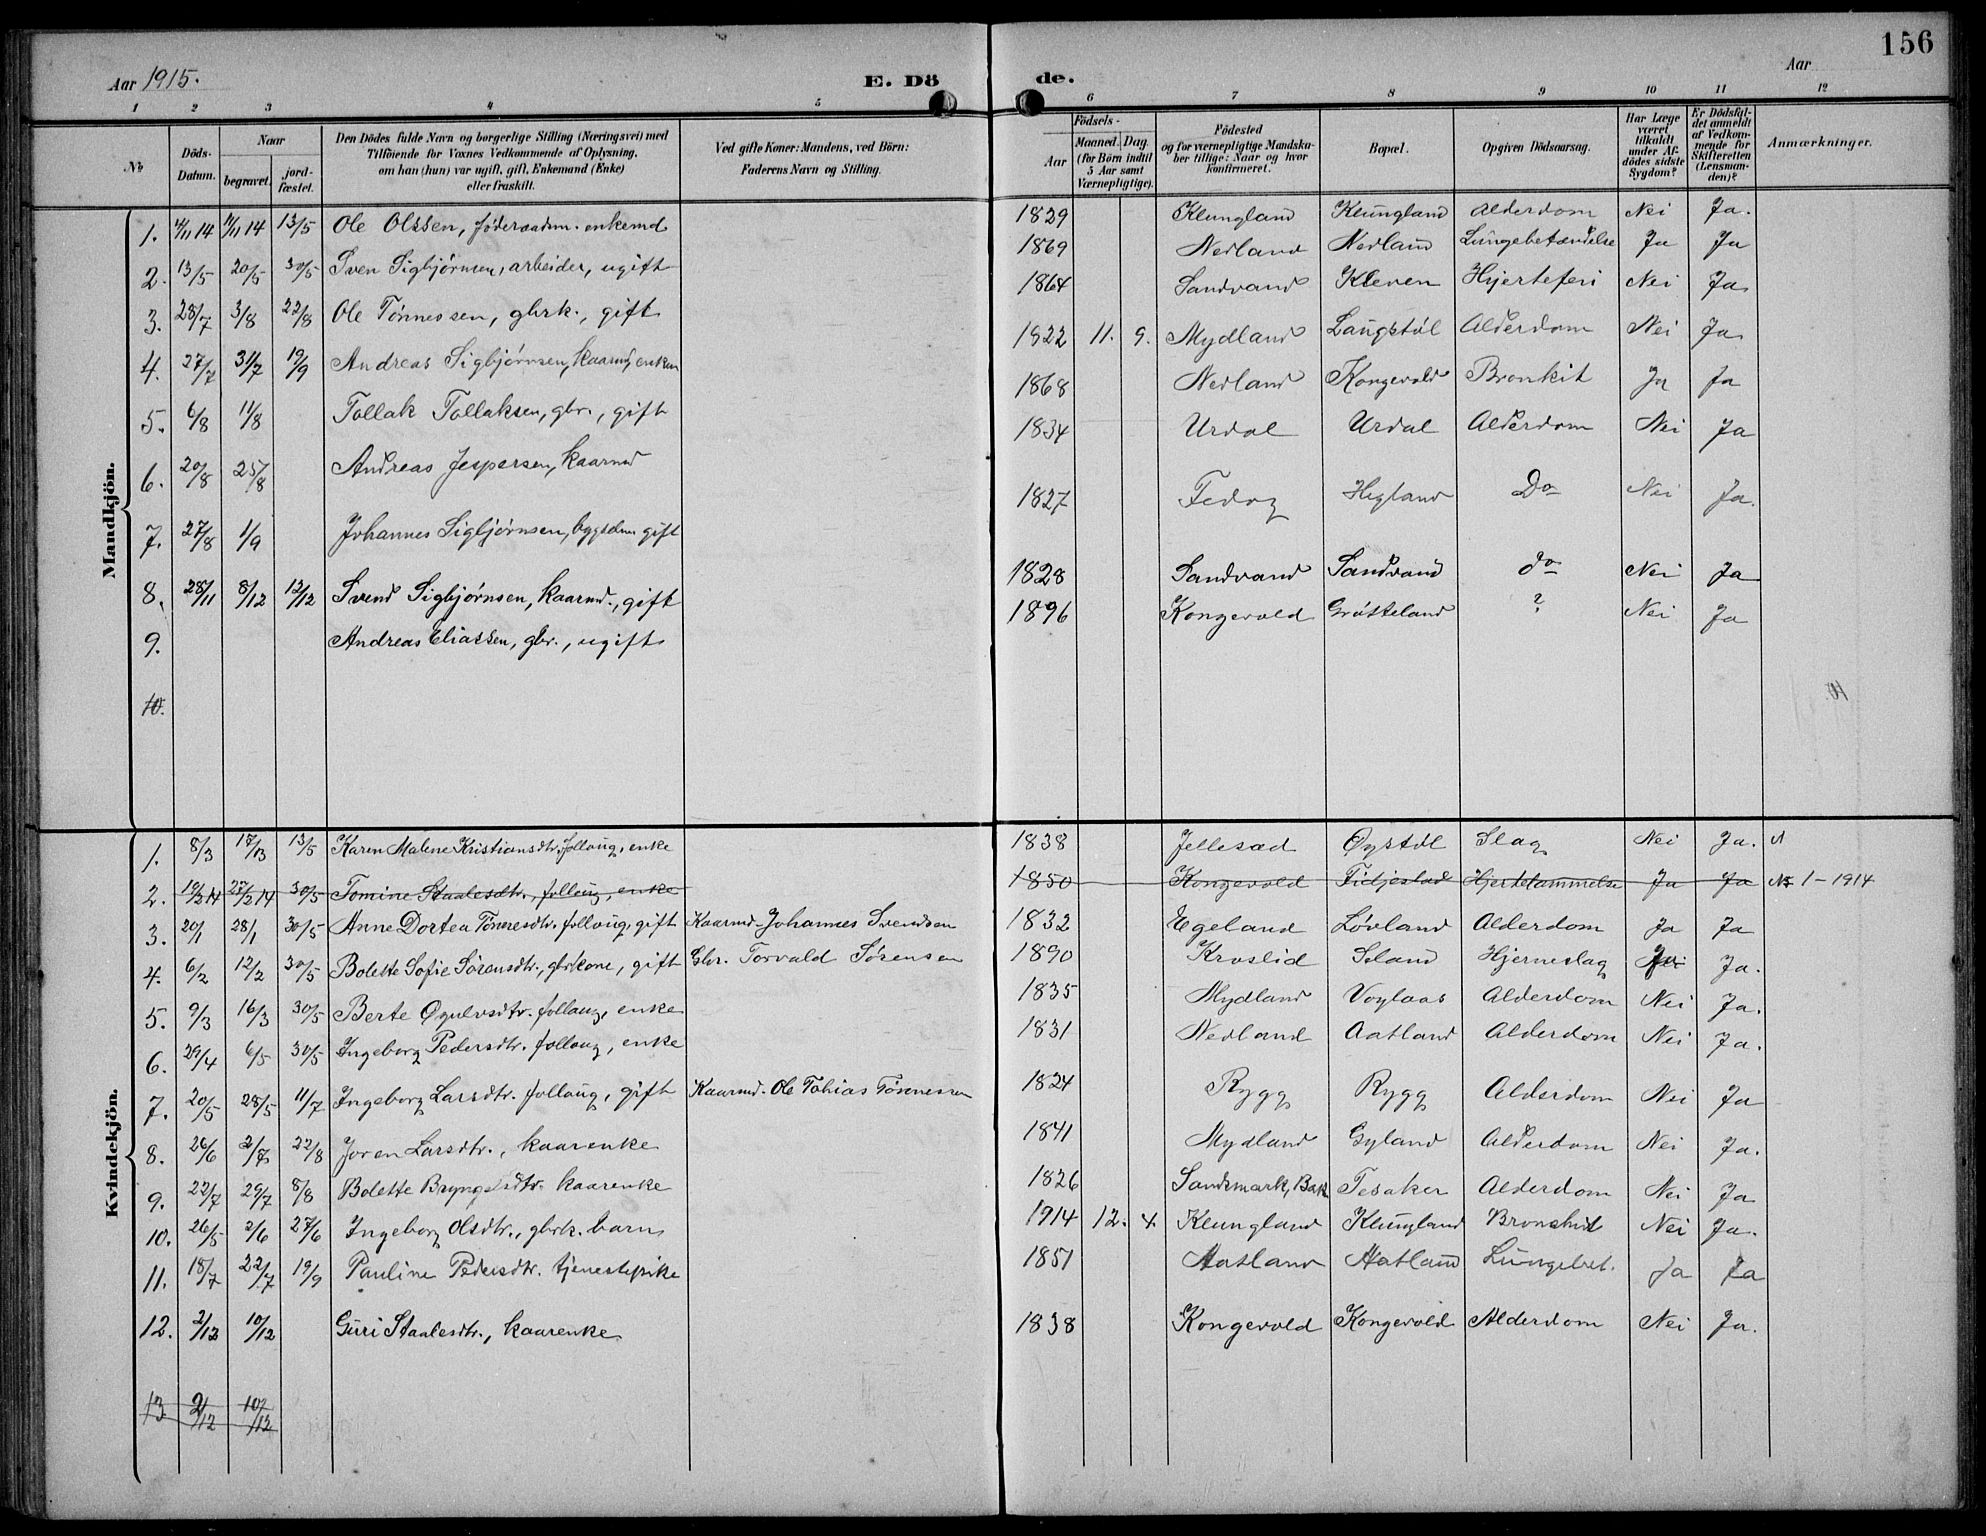 156
Aar 1915. E. Dö de. Aar
1 2 3 4 5 6 7 8 9 10 11 12
No Döds-Datum. Naar begravet. jordfæstet. Den Dödes fulde Navn og borgerlige Stilling (Næringsvei) med Tilföiende for Voxnes Vedkommende af Oplysning, om han (hun) var ugift, gift, Enkemand (Enke) eller fraskilt. Ved gifte Koner: Mandens, ved Börn: Faderens Navn og Stilling. Födsels- Aar Maaned. Dag. (for Börn indtil 5 Aar samt Værnepligtige). Födested og for værnepligtige Mandskaber tillige: Naar og hvor konfirmeret. Bopæl. Opgiven Dödsaarsag. Har Læge været tilkaldt under Afdödes sidste Sygdom? Er Dödsfaldet anmeldt af Vedkommende for Skifteretten (Lensmanden)? Anmærkninger.
Mandkjön.
1. 4/11 14 11/11 14 13/5 Ole Olssen, føderaadsm. enkemd 1829 Klungland Klungland Alderdom Nei Ja.
2. 13/5 20/5 30/5 Sven Sigbjørnsen, arbeider, ugift 1869 Nedland Nedland Lungebetændelse Ja Ja
3. 28/7 3/8 22/8 Ole Tønnessen, gbrk., gift 1864 Sandvand Kleven Hjertefeil Nei Ja
4. 27/7 31/7 19/9 Andreas Sigbjørnsen, kaarmd, enkem 1822 11. 9. Mydland Langstøl Alderdom Nei Ja
5. 6/8 11/8 Tollak Tollaksen, gbr., gift 1868 Nedland Kongevold Bronkit Ja Ja
6. 20/8 25/8 Andreas Jespersen, kaarmd 1834 Urdal Urdal Alderdom Nei Ja
7. 27/8 1/9 Johannes Sigbjørnsen, bygselm gift 1827 Fedog Hegland Do Nei Ja.
8. 28/11 8/12 12/12 Svend Sigbjørnsen, kaarmd., gift 1828 Sandvand Sandvand do Nei Ja
9. Andreas Eliassen, gbr., ugift 1896 Kongevold Grøtteland ? Nei Ja
10.
Kvindekjön.
1. 8/3 17/3 13/5 Karen Malene Kristiansdtr. follaug, enke 1838 Jellesad Øystøl Slag Nei Ja.
2. 19/2 14 27/2 14 30/5 Tomine Staalesdtr., follaug, enke 1850 Kongevold Fidjestad Hjertelammelse Ja Ja No 1-1914
3. 20/1 28/1 30/5 Anne Dortea Tønnesdtr. follaug, gift Kaarmd Johannes Svendsen 1832 Egeland Løvland Alderdom Ja Ja
4. 6/2 12/2 30/5 Bolette Sofie Sørensdtr., gbrkone, gift Gbr. Torvald Sørensen 1890 Kroslid Seland Hjerneslag Ja.
5. 9/3 16/3 30/5 Berte Øyulvsdtr. follaug, enke 1835 Mydland Voylaas Alderdom Nei Ja.
6. 29/4 6/5 30/5 Ingeborg Pedersdtr. follaug, enke 1831 Nedland Aatland Alderdom Nei Ja.
7. 20/5 28/5 11/7 Ingeborg Larsdtr. follaug, gift Kaarmd. Ole Tobias Tønnessen 1824 Rygg Rygg Alderdom Nei Ja
8. 26/6 2/7 22/8 Joren Larsdtr., kaarenke 1841 Mydland Gyland Alderdom Nei Ja.
9. 22/7 29/7 8/8 Bolette Bryngelsdtr. kaarenke 1826 Sandsmark, Bak Tesaker Alderdom Nei Ja
10. 26/5 2/6 27/6 Ingeborg Olsdtr., gbrk. barn 1914 12. 4. Klungland Klungland Bronchit Nei Ja.
11. 18/7 22/7 19/9 Pauline Pedersdtr. tjenestepike 1851 Aatland Aatland Lungebet. Ja Ja
12. 2/12 10/12 Guri Staalesdtr., kaarenke 1838 Kongevold Kongevold Alderdom Nei Ja.
13 2/12 10/12